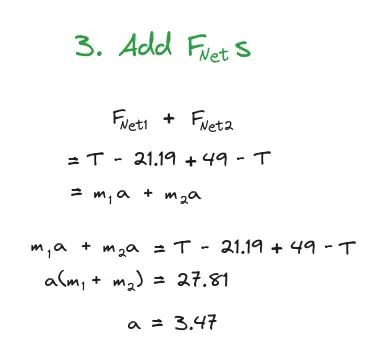 3. Add FNet s
FNet1 + FNet2
= T - 21.19 + 49 - T
= m₁a + m₂a
m₁a + m₂a = T - 21.19 + 49 - T
a(m₁ + m₂) = 27.81
a = 3.47